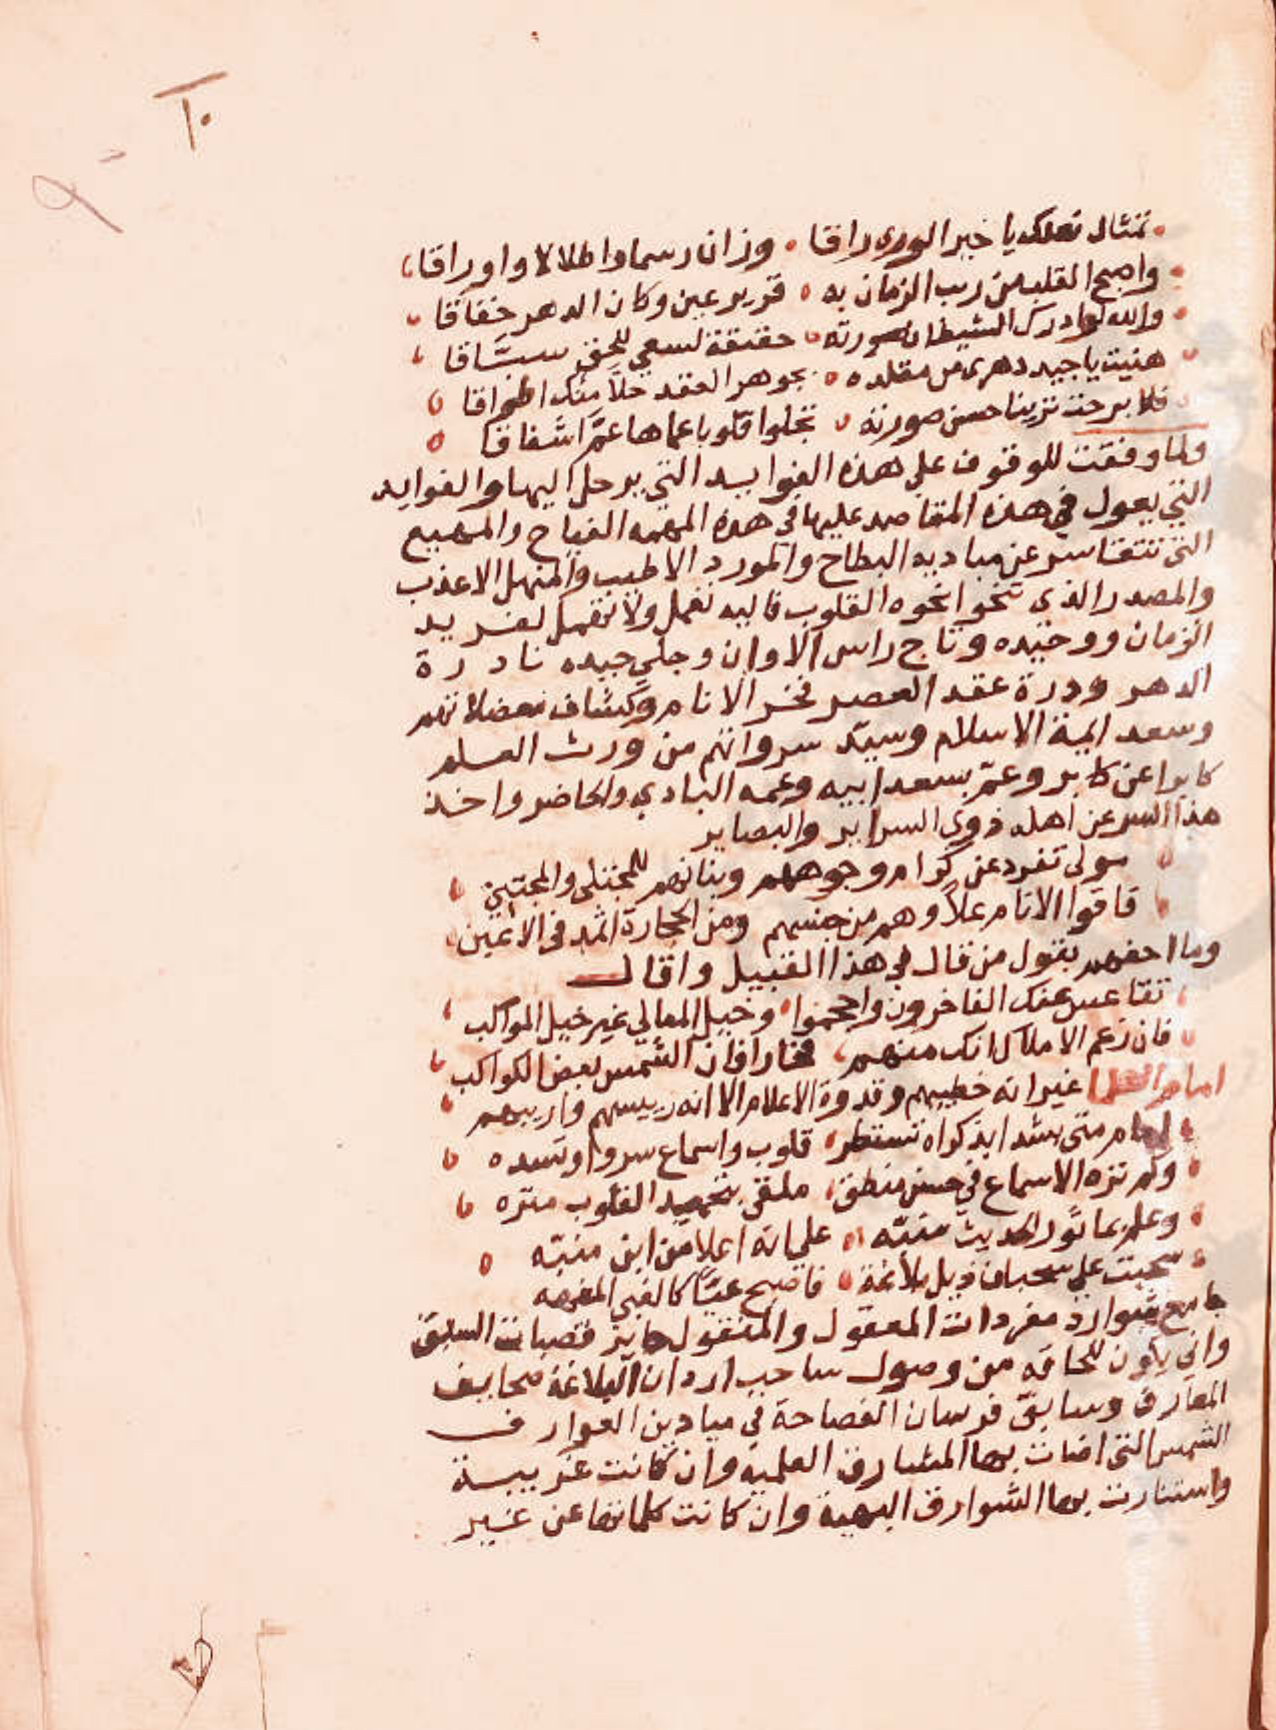 ١٠
تمثال نعلك يا خير الورى راقا وزان رسما واطلالا واوراقا
واصبح القلب من ريب الزمان به قرير عين وكان الدهر خفاقا
والله لو ادرك الشيطان صورته حقيقة لسعى للحق سبّاقا
هنيت يا جيد دهرى من مقلده بجوهر العقد حلا منك اطواقا
فلا برحت ترينا حسن صورته تجلوا قلوبا عماها عمّ اشفاقا
ولما وفقت للوقوف على هذه الفوايد التي يرحل اليها والفوايد
التي يعول في هذه المقاصد عليها في هذه المهمه الفياح والمهيع
التي تتقاسر عن مباديه البطاح والمورد الاطيب والمنهل الاعذب
والمصدر الذى تنحوا نحوه القلوب فاليه نعمل ولا نهمل لفريد
الزمان ووحيده وتاج راس الاوان وحلى جيده نادرة
الدهر ودرة عقد العصر فخر الانام وكشاف معضلاتهم
وسعد ايمة الاسلام وسيّد سرواتهم من ورث العلم
كابرا عن كابر وعمّ بسعد ابيه وعمه البادي والحاضر واخذ
هذا السر عن اهله ذوي السراير والبصاير
مولى تفرد عن كرام وجوههم وبنانهم للمجتلى والمجتني
فاقوا الانام علاً وهم من جنسهم ومن الحجارة اثمد في الاعين
وما احقهم بقول من قال في هذا القبيل واقال
تقاعس عنك الفاخرون واحجموا وخيل المعالي غير خيل المواكب
فان زعم الاملاك انك منهم فخارا فان الشمس بعض الكواكب
امام العلا غير انه خطيبهم وقدوة الاعلام الا انه رييسهم واريبهم
امام متى يشدا بذكراه تستطر قلوب واسماع سروا وتسده
وكم نزه الاسماع في حسن منطق ملقى بتمهيد القلوب منزه
وعلم بماثور الحديث منبّه على انه اعلا من ابن منبّه
سحبت على سحبان ذيل بلاغة فاصبح عيًّا كالغبي المفهه
جامع شوارد مفردات المعقول والمنقول حايز قصبات السبق
واني يكون للحاقه من وصول ساحب اردان البلاغة صحايف
المعارف وسابق فرسان الفصاحة في ميادين العوارف
الشمس التي اضات بها المشارق العلمية وان كانت غريبة
واستنارت بها الشوارق البهية وان كانت كلماتها عن غير